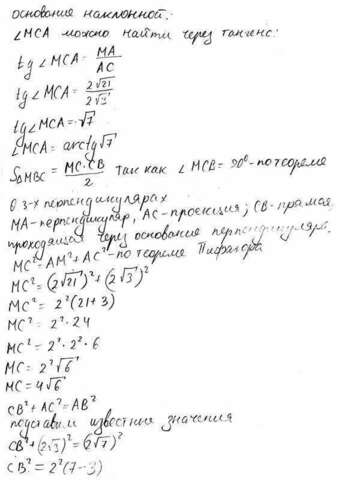 основания наклонной.
∠MCA можно найти через тангенс:
tg ∠MCA = MA/AC
tg ∠MCA = 2√21/2√3
tg ∠MCA = √7
∠MCA = arctg √7
S△MBC = MC·CB/2 так как ∠MCB = 90° - по теореме
о 3-х перпендикулярах
MA-перпендикуляр, AC-проекция; CB-прямая,
проходящая через основание перпендикуляра.
MC² = AM² + AC² - по теореме Пифагора
MC² = (2√21)² + (2√3)²
MC² = 2²(21+3)
MC² = 2²·24
MC² = 2²·2²·6
MC = 2²√6
MC = 4√6
CB² + AC² = AB²
подставим известные значения
CB² + (2√3)² = (2√7)²
CB² = 2²(7-3)